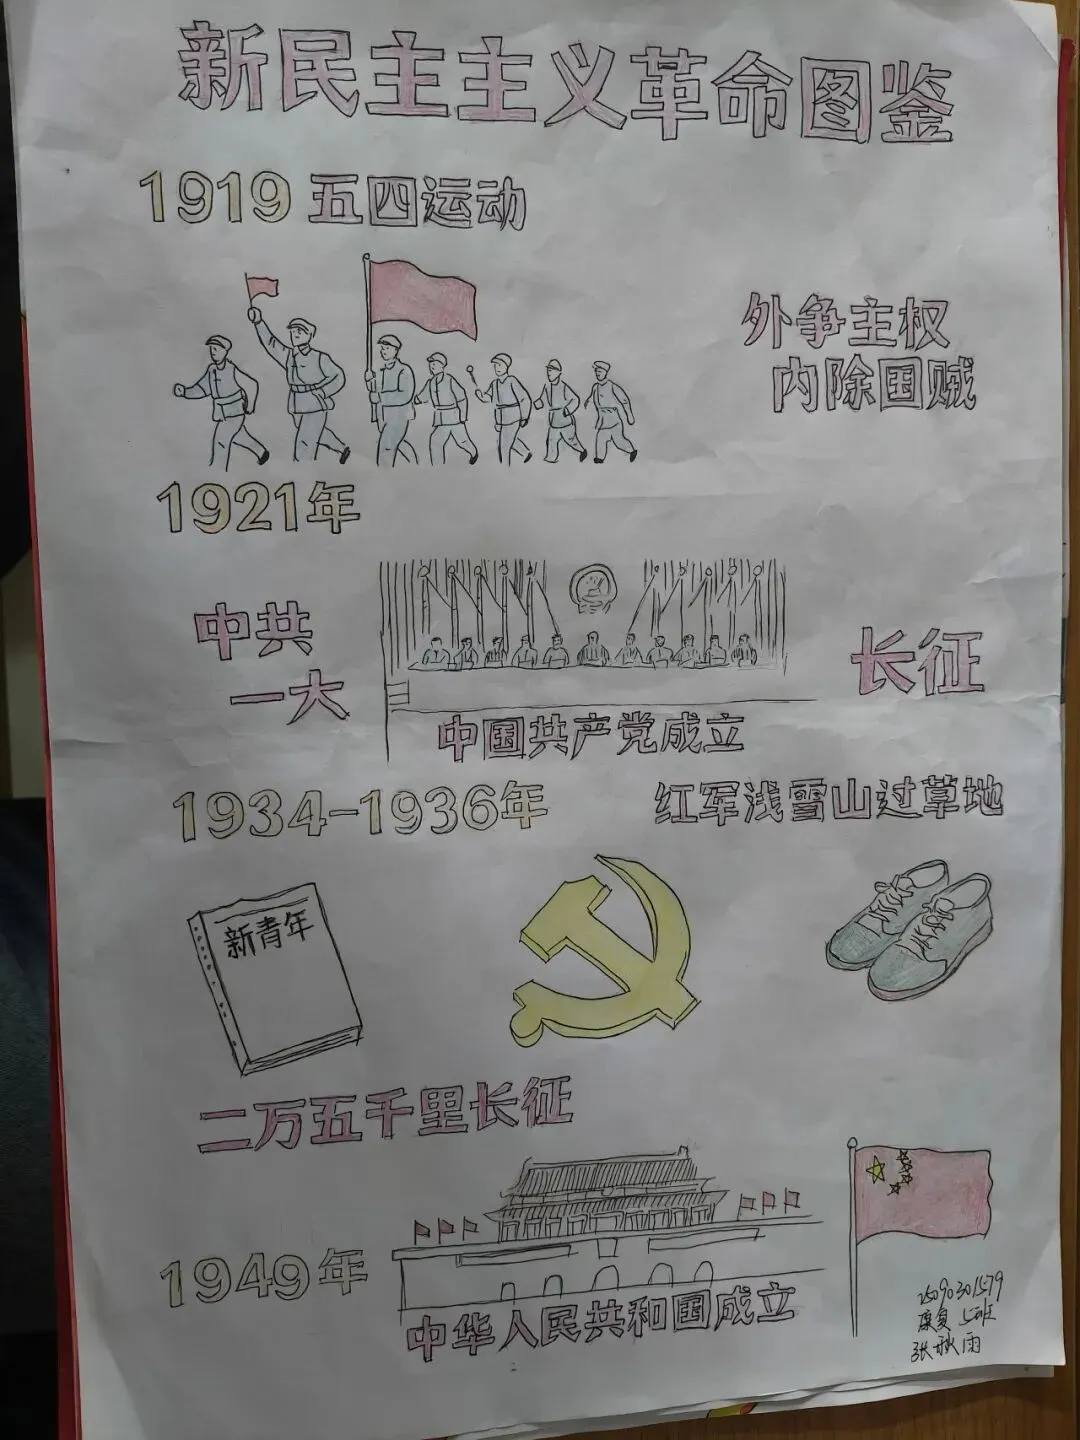 新民主主义革命图鉴
1919 五四运动
外争主权
内除国贼
1921年
中共
一大
长征
中国共产党成立
1934-1936年
红军浅雪山过草地
新青年
二万五千里长征
1949年
中华人民共和国成立
25090301579
康复5班
张秋雨